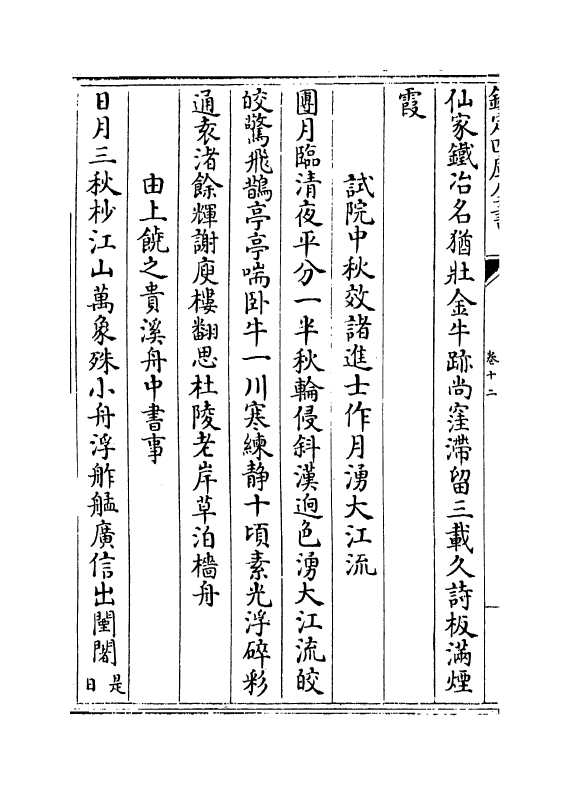 欽定四庫全書
卷十二
仙家鐵冶名猶壯金牛跡尚窪滯留三載久詩板滿煙
霞
試院中秋效諸進士作月湧大江流
團月臨清夜平分一半秋輪侵斜漢逈色湧大江流皎
皎驚飛鵲亭亭喘卧牛一川寒練静十頃素光浮碎彩
通袁渚餘輝謝庾樓翻思杜陵老岸草泊檣舟
由上饒之貴溪舟中書事
日月三秋杪江山萬象殊小舟浮舴艋廣信出闉闍是
日